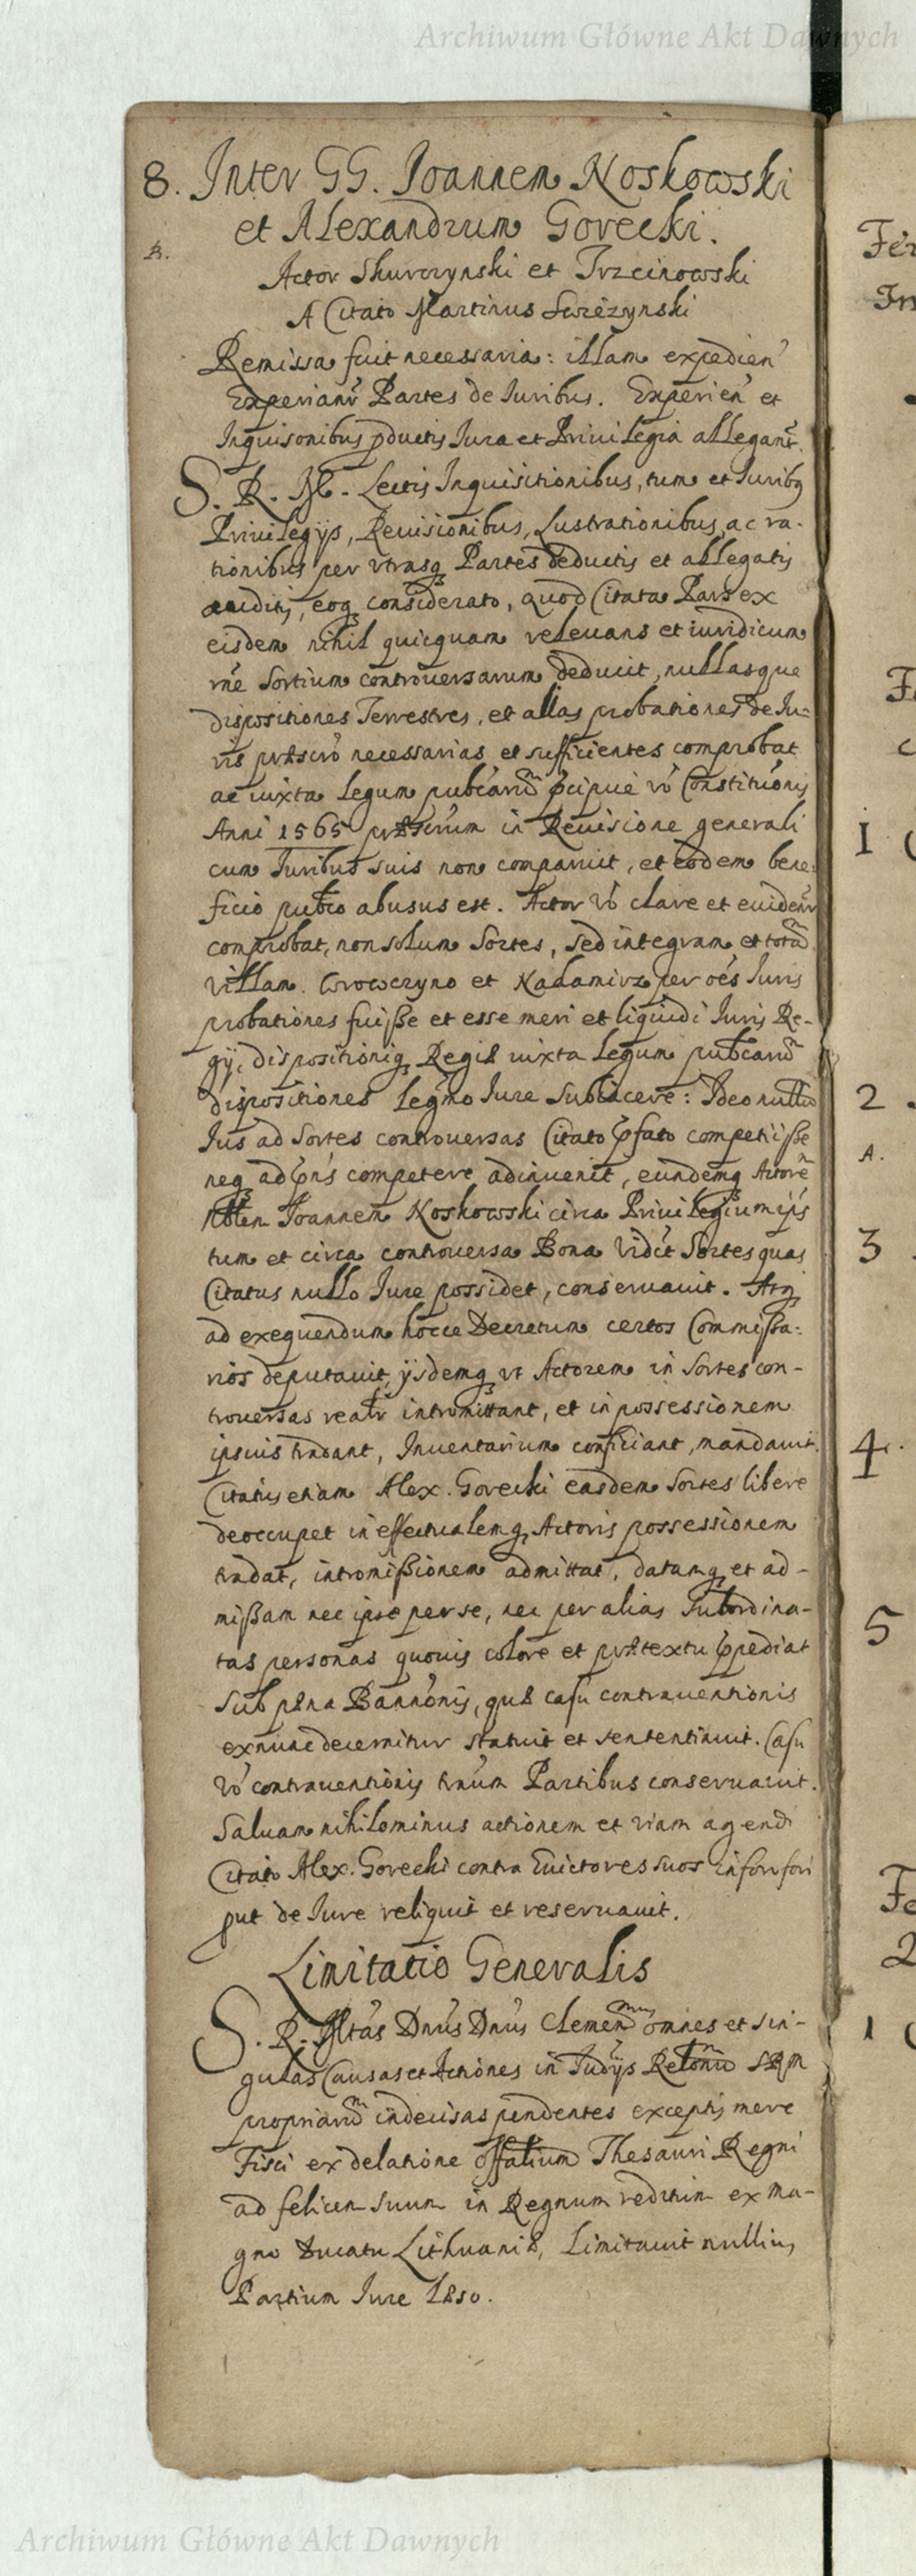 Archiwum Główne Akt Dawnych
8. Inter GG. Joannem Noskowski
et Alexandrum Gorecki.
R.
Actor Skurczynski et Trzcinowski
A Citato Martinus
Remissa fuit necessaria: illam expedien̄
Experianr̄ Partes de Juribus. Experien̄ et
Inquisonibus pductis Jura et Priuilegia allegant.
S. R. M. Lectis Inquisitionibus, tum et Juribꝫ
Priuilegijs, Reuisionibus, Lustrationibus, ac ra-
tionibus per vtrasqꝫ Partes deductis et allegatis
auditis, eoqꝫ considerato, quod Citata Pars ex
eisdem nihil quicquam releuans et iuridicum
rne Sortium controuersarum deduxit, nullasque
dispositiones Terrestres, et alias probationes de Ju-
ris necessarias et sufficientes comprobat
ac iuxta Legum pcipue vo Constitūonis
Anni 1565 in Reuisione generali
cum Juribus suis non comparuit, et eodem bene-
ficio pubco abusus est. Actor vo clare et euidenr
comprobat, non solum Sortes, sed integram et totā
villam Wrowczyno et Nadamirz per oēs Juris
probationes fuisse et esse meri et liquidi Juris Re-
gij, dispositioniqꝫ Regiæ iuxta Legum pubcarū
dispositiones Legmo Jure Subiacere: Ideo nullū
Jus ad Sortes controuersas Citato pfato competiisse
neqꝫ ad pns competere adinuenit, eundemqꝫ Actorē
Nblem Joannem Noskowski circa Priuilegium ips
tum et circa controuersa Bona vidct Sortes quas
Citatus nullo Jure possidet, conseruauit. Atqꝫ
ad exequendum hocce Decretum certos Commissa-
rios deputauit, ijsdemqꝫ vt Actorem in Sortes con-
trouersas realr intromittant, et in possessionem
ipsius tradant, Inuentarium conficiant, mandauit.
Citatus etiam Alex. Gorecki easdem Sortes libere
deoccupet in effectualemqꝫ Actoris possessionem
tradat, intromissionem admittat, datamqꝫ et ad-
missam nec ipse per se, nec per alias Subordina-
tas personas quouis colore et prætextu ppediat
Sub pæna Bannonis, quæ casu contrauentionis
exnunc decernitur statuit et sententiauit. Casu
vo contrauentionis trnum Partibus conseruauit.
Saluam nihilominus actionem et viam agendi
Citato Alex. Gorecki contra Euictores suos in foro fori
put de Jure reliquit et reseruauit.
Limitatio Generalis
S. R. Mtas Dnus Dnus Clemen̄ mus omnes et sin-
gulas Causas et Actiones in Judijs Relonū SRM
propriarū indecisas pendentes exceptis mere
Fisci ex delatione offalium Thesauri Regni
ad felicem suum in Regnum reditum ex Ma-
gno Ducatu Lithuaniæ, Limitauit nullius
Partium Jure læso.
Fe
In
1
2
A.
3
4.
5
Fe
2
1
Archiwum Główne Akt Dawnych